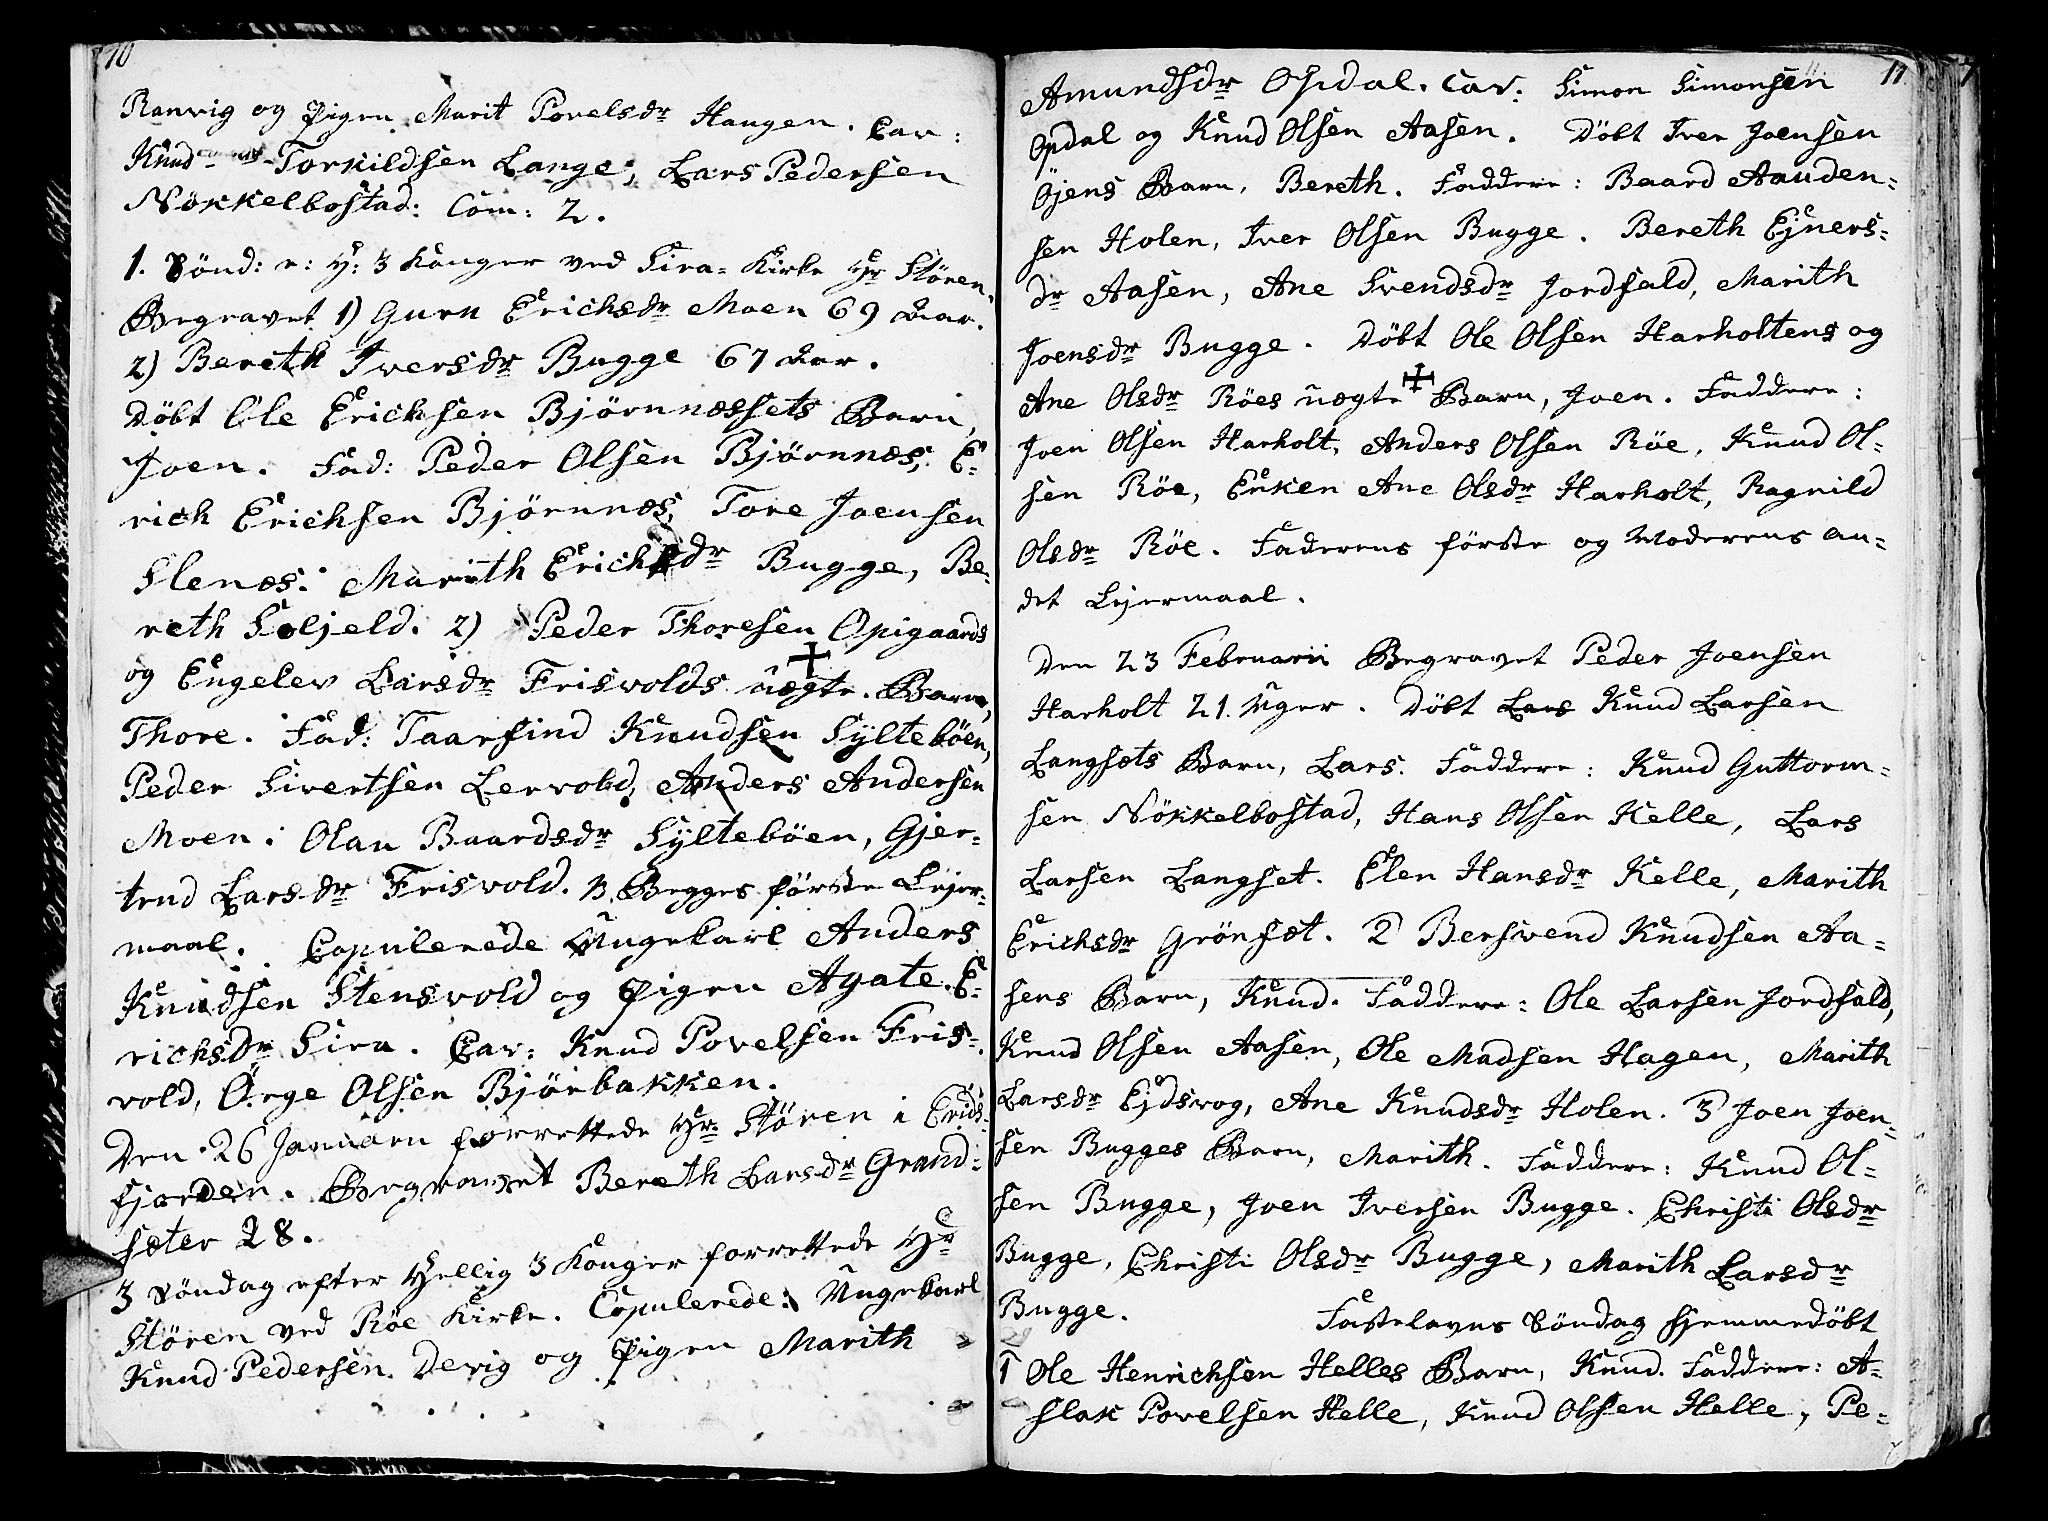 10
Ranvig og Pigen Marit Povelsdr Haugen. Cav:
Knud Torkildsen Lange, Lars Pedersen
Nökkelbostad. Com: 2.
1. Sönd: e: H: 3 Konger ved Sira-Kirke Hr Stören.
Begravet 1) Guru Erichsdr Moen 69 Aar.
2) Bereth Iversdr Bugge 67 Aar.
Döbt Ole Erichsen Björnnæssets Barn,
Joen. Fad: Peder Olsen Björnnæs, E-
rich Erichsen Björnnæs, Tore Joensen
Slenæs. Marith Erichsdr Bugge, Be-
reth Soljeld. 2) Peder Thoresen Opigaards
og Engelev Larsdr Frisvolds uægte Barn,
Thore. Fad: Taarfind Knudsen Syltebøen,
Peder Sivertsen Lervold, Anders Andersen
Moen. Olau Baardsdr Syltebøen, Gjer-
trud Larsdr Frisvold. B. Begges förste Lejer-
maal. Copulerede Ungekarl Anders
Knudsen Stensvold og Pigen Agate E-
richsdr Sira. Cav: Knud Povelsen Fris-
vold, Örge Olsen Björbakken.
Den 26 Januarii forrettede Hr Stören i Erids-
fjorden. Begravet Bereth Larsdr Grand-
sæter 28.
3 Söndag efter Hellig 3 Konger forrettede Hr
Stören ved Röe Kirke. Copulerede: Ungekarl
Knud Pedersen Devig og Pigen Marith
11
Amundsdr Opdal. Cav: Simon Simonsen
Opdal og Knud Olsen Aasen. Döbt Iver Joensen
Öjens Barn, Bereth. Faddere: Baard Aanden-
sen Holen, Iver Olsen Bugge. Bereth Ejners-
dr Aasen, Ane Svendsdr Jordfald, Marith
Joensdr Bugge. Döbt Ole Olsen Harholtens og
Ane Olsdr Röes uægte Barn, Joen. Faddere:
Joen Olsen Harholt, Anders Olsen Röe, Knud Ol-
sen Röe, Enken Ane Olsdr Harholt, Ragnild
Olsdr Röe. Faderens förste og Moderens an-
det Lejermaal.
Den 23 Februarii Begravet Peder Joensen
Harholt 21. Uger. Döbt Lars Knud Larsen
Langsets Barn, Lars. Faddere: Knud Guttorm-
sen Nökkelbostad, Hans Olsen Helle, Lars
Larsen Langset. Elen Hansdr Helle, Marith
Erichsdr Grönset. 2 Bersvend Knudsen Aa-
sens Barn, Knud. Faddere: Ole Larsen Jordfald,
Knud Olsen Aasen, Ole Madsen Hagen, Marith
Larsdr Ejdsvog, Ane Knudsdr Holen. 3 Joen Joen-
sen Bugges Barn, Marith. Faddere: Knud Ol-
sen Bugge, Joen Iversen Bugge. Christi Olsdr
Bugge, Christi Olsdr Bugge, Marith Larsdr
Bugge. Fastelavns Söndag hjemmedöbt
1 Ole Henrichsen Helles Barn, Knud. Faddere: A-
slak Povelsen Helle, Knud Olsen Helle, Pe-